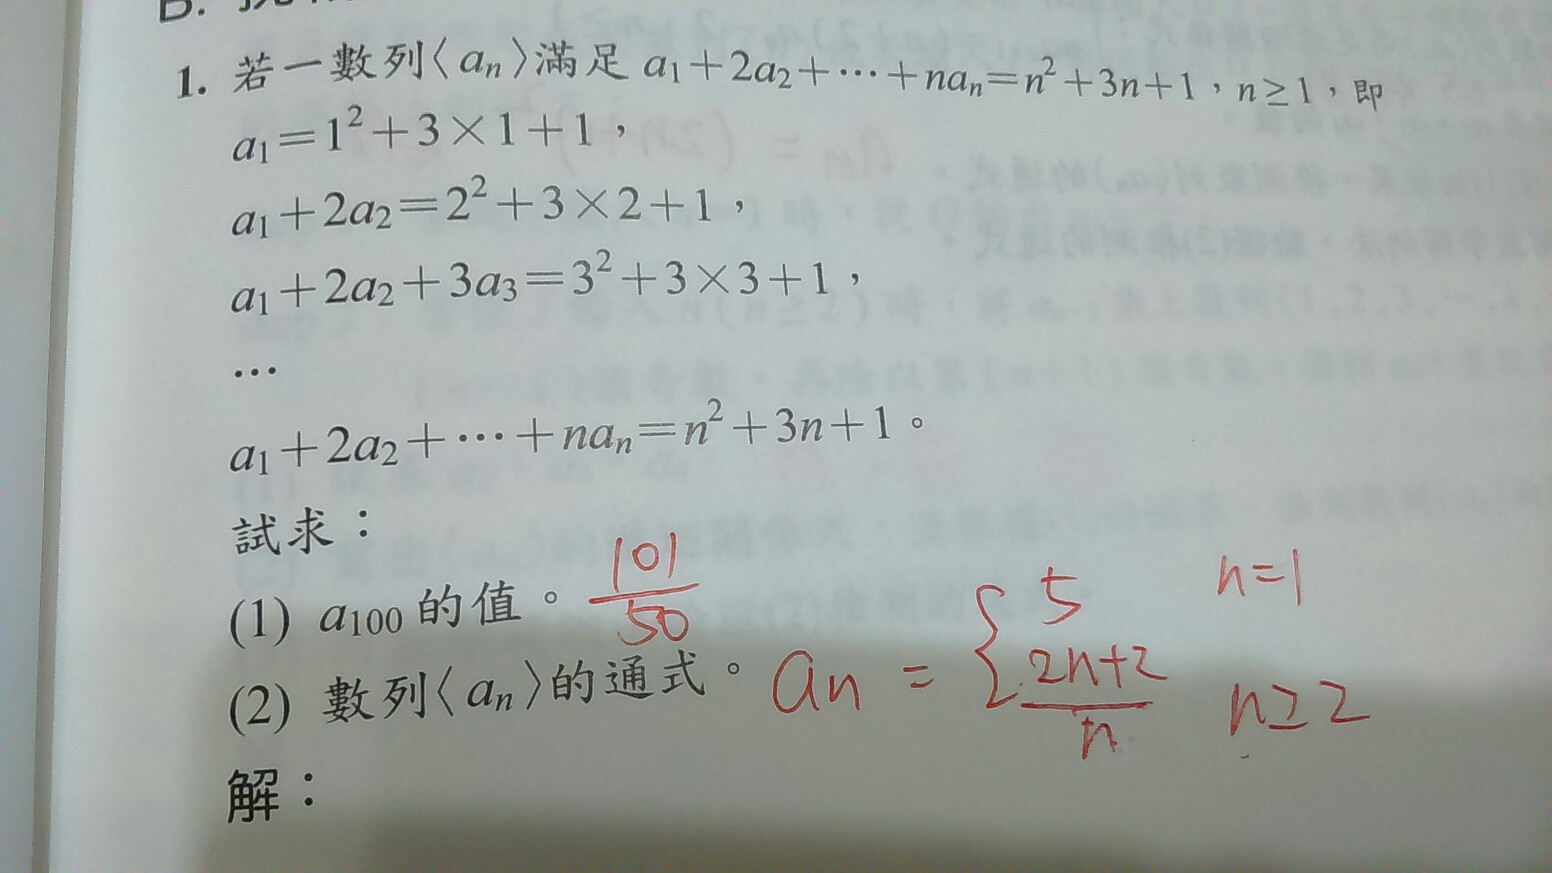 B.
1. 若一數列⟨aₙ⟩滿足 a₁+2a₂+⋯+naₙ=n²+3n+1，n≥1，即
a₁=1²+3×1+1，
a₁+2a₂=2²+3×2+1，
a₁+2a₂+3a₃=3²+3×3+1，
⋯
a₁+2a₂+⋯+naₙ=n²+3n+1。
試求：
(1) a₁₀₀的值。 101/50
(2) 數列⟨aₙ⟩的通式。 aₙ = { 5 n=1
(2n+2)/n n≥2
解：